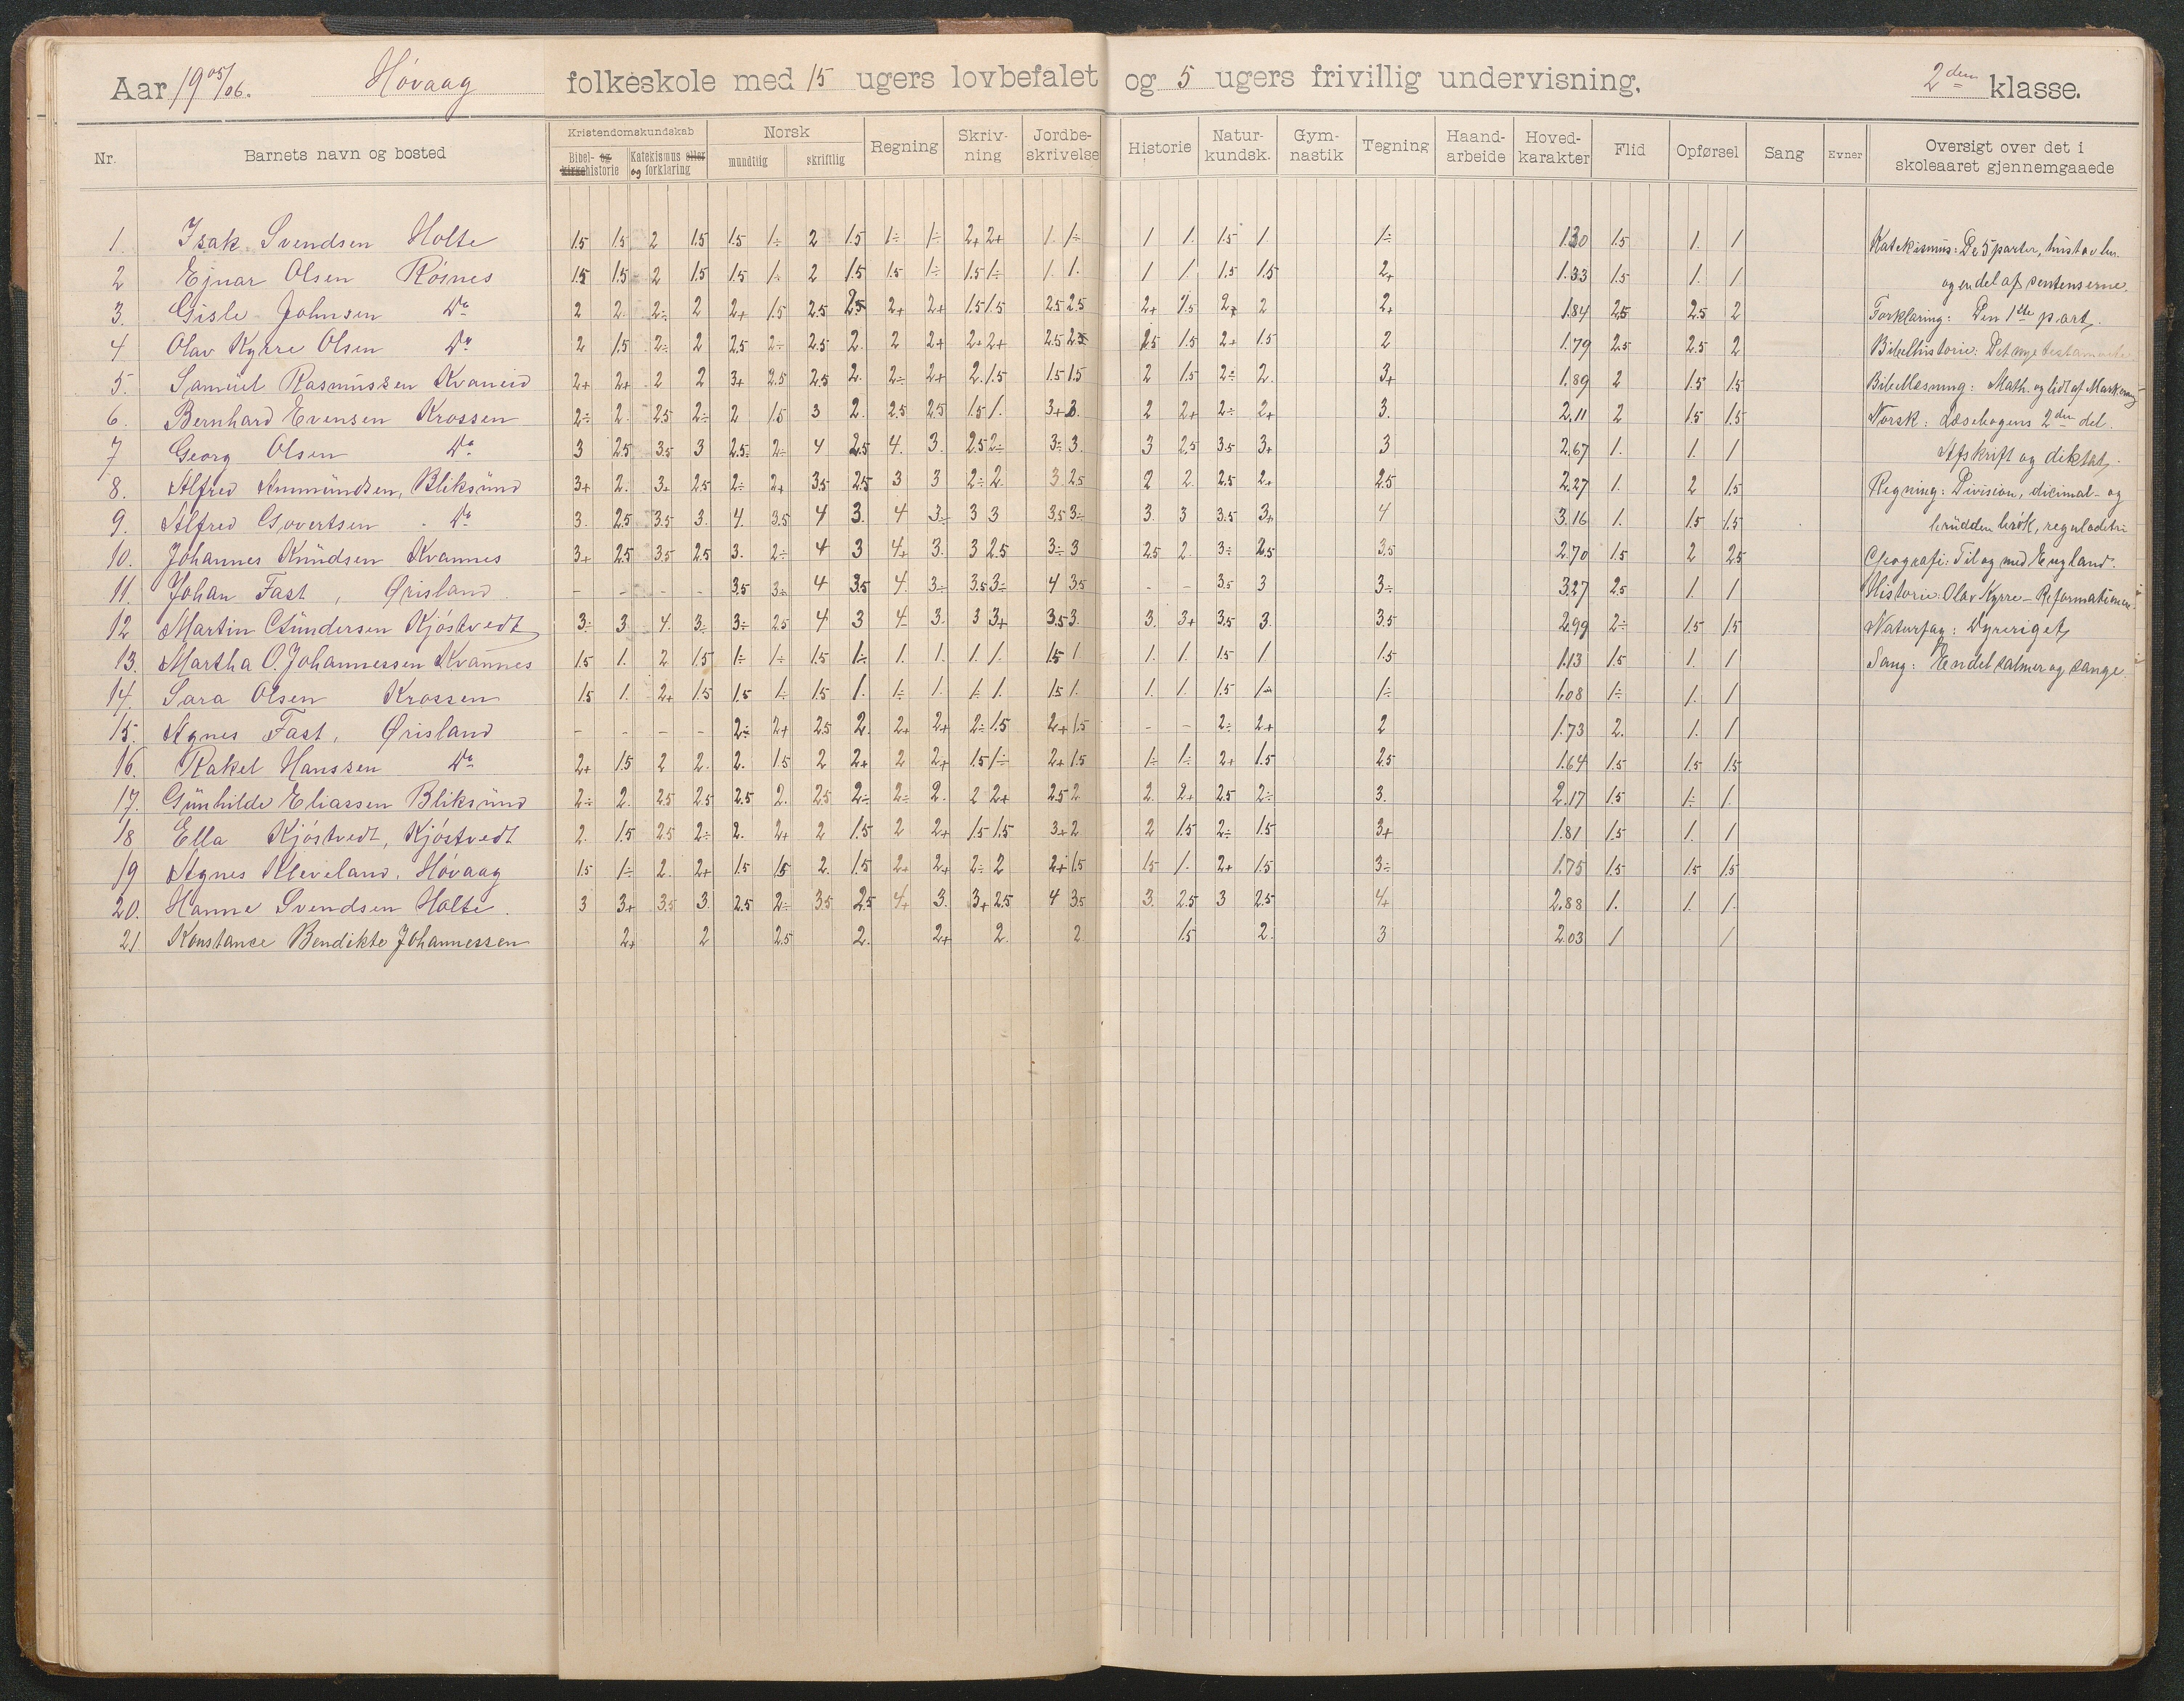 Aar 1905/06. Høvaag folkeskole med 15 ugers lovbefalet og 5 ugers frivillig undervisning. 2den klasse.
Nr. Barnets navn og bosted Kristendomskundskab Norsk Regning Skriv-ning Jordbe-skrivelse Historie Natur-kundsk. Gym-nastik Tegning Haand-arbeide Hoved-karakter Flid Opførsel Sang Evner Oversigt over det i skoleaaret gjennemgaaede
Bibel- og kirkehistorie Katekismus eller og forklaring mundtlig skriftlig
1. Isak Svendsen Holte 1.5 1.5 2 1.5 1.5 1÷ 2 1.5 1÷ 1÷ 2+ 2+ 1. 1÷ 1 1. 1.5 1. 1÷ 1.30 1.5 1. 1
2 Ejnar Olsen Røsnes 1.5 1.5 2 1.5 1.5 1÷ 2 1.5 1.5 1÷ 1.5 1÷ 1. 1. 1 1. 1.5 1.5 2+ 1.33 1.5 1. 1
3. Gisle Johnsen Do 2 2. 2÷ 2 2+ 1.5 2.5 2.5 2+ 2+ 1.5 1.5 2.5 2.5 2+ 1.5 2+ 2 2+ 1.84 2.5 2.5 2
4 Olav Kyrre Olsen Do 2 1.5 2÷ 2 2.5 2÷ 2.5 2. 2 2+ 2+ 2+ 2.5 2.5 2.5 1.5 2+ 1.5 2 1.79 2.5 2.5 2
5. Samuel Rasmussen Kvaneid 2+ 2+ 2 2 3+ 2.5 2.5 2. 2÷ 2+ 2. 1.5 1.5 1.5 2 1.5 2÷ 2. 3+ 1.89 2 1.5 1.5
6. Bernhard Evensen Krossen 2÷ 2. 2.5 2÷ 2 1.5 3 2. 2.5 2.5 1.5 1. 3+ 3. 2 2+ 2÷ 2+ 3. 2.11 2 1.5 1.5
7 Georg Olsen Do 3 2.5 3.5 3 2.5 2÷ 4 2.5 4. 3. 2.5 2÷ 3÷ 3. 3 2.5 3.5 3+ 3 2.67 1. 1. 1
8. Alfred Ammundsen, Bliksund 3+ 2. 3+ 2.5 2÷ 2+ 3.5 2.5 3 3 2÷ 2. 3 2.5 2 2. 2.5 2+ 2.5 2.27 1. 2 1.5
9. Alfred Govertsen Do 3. 2.5 3.5 3. 4. 3.5 4 3. 4 3÷ 3 3 3.5 3÷ 3. 3 3.5 3+ 4 3.16 1. 1.5 1.5
10. Johannes Knudsen Kvannes 3+ 2.5 3.5 2.5 3. 2÷ 4 3 4+ 3. 3 2.5 3÷ 3 2.5 2. 3÷ 2.5 3.5 2.70 1.5 2 2.5
11. Johan Fast, Ørisland. - - - - 3.5 3+ 4 3.5 4. 3÷ 3.5 3÷ 4 3.5 - - 3.5 3 3÷ 3.27 2.5 1. 1
12 Martin Gundersen Kjøstvedt 3÷ 3 4. 3÷ 3÷ 2.5 4 3 4. 3. 3 3+ 3.5 3. 3. 3+ 3.5 3. 3.5 2.99 2÷ 1.5 1.5
13. Martha O. Johannessen Kvannes 1.5 1. 2 1.5 1÷ 1÷ 1.5 1÷ 1. 1. 1. 1. 1.5 1. 1. 1. 1.5 1 1.5 1.13 1.5 1. 1
14. Sara Olsen Krossen 1.5 1. 2+ 1.5 1.5 1÷ 1.5 1. 1÷ 1. 1÷ 1. 1.5 1. 1. 1. 1.5 1÷ 1÷ 1.08 1÷ 1. 1
15. Agnes Fast, Ørisland - - - - 2÷ 2+ 2.5 2. 2+ 2+ 2÷ 1.5 2+ 1.5 - - 2÷ 2+ 2 1.73 2. 1. 1
16. Rakel Hanssen Do 2+ 1.5 2 2. 2. 1.5 2 2+ 2 2+ 1.5 1÷ 2+ 1.5 1÷ 1÷ 2+ 1.5 2.5 1.64 1.5 1.5 1.5
17. Gunhilde Eliassen Bliksund 2÷ 2. 2.5 2.5 2.5 2. 2.5 2÷ 2÷ 2. 2 2+ 2.5 2 2. 2+ 2.5 2÷ 3. 2.17 1.5 1÷ 1.
18 Ella Kjøstvedt, Kjøstvedt 2. 1.5 2.5 2÷ 2. 2+ 2 1.5 2 2+ 1.5 1.5 3+ 2 2 1.5 2÷ 1.5 3+ 1.81 1.5 1. 1
19 Agnes Kleveland, Høvaag 1.5 1÷ 2. 2+ 1.5 1.5 2. 1.5 2+ 2+ 2÷ 2 2+ 1.5 1.5 1. 2+ 1.5 3÷ 1.75 1.5 1.5 1.5
20. Hanne Svendsen Holte. 3 3+ 3.5 3. 2.5 2÷ 3.5 2.5 4+ 3. 3+ 2.5 4 3.5 3. 2.5 3 2.5 4+ 2.88 1. 1. 1.
21 Konstance Bendikte Johannessen 2+ 2 2.5 2. 2+ 2. 2 1.5 2. 3 2.03 1 1
Katekismus: De 5 parter,
og en del af sentenserne.
Forklaring: Den 1ste part.
Bibelhistorie: Det nye testamente
Bibellæsning: Math. og lidt af Mark.
Norsk: Læsebogens 2den del.
Afskrift og diktat.
Regning: Division, decimal- og
brudden brøk, reguladetri
Geografi: Til og med England.
Historie: Olav Kyrre - Reformationen.
Naturfag: Dyreriget
Sang: En del salmer og sange.